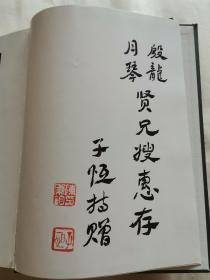 殷龍
月琴
贤兄嫂惠存
子恆持贈